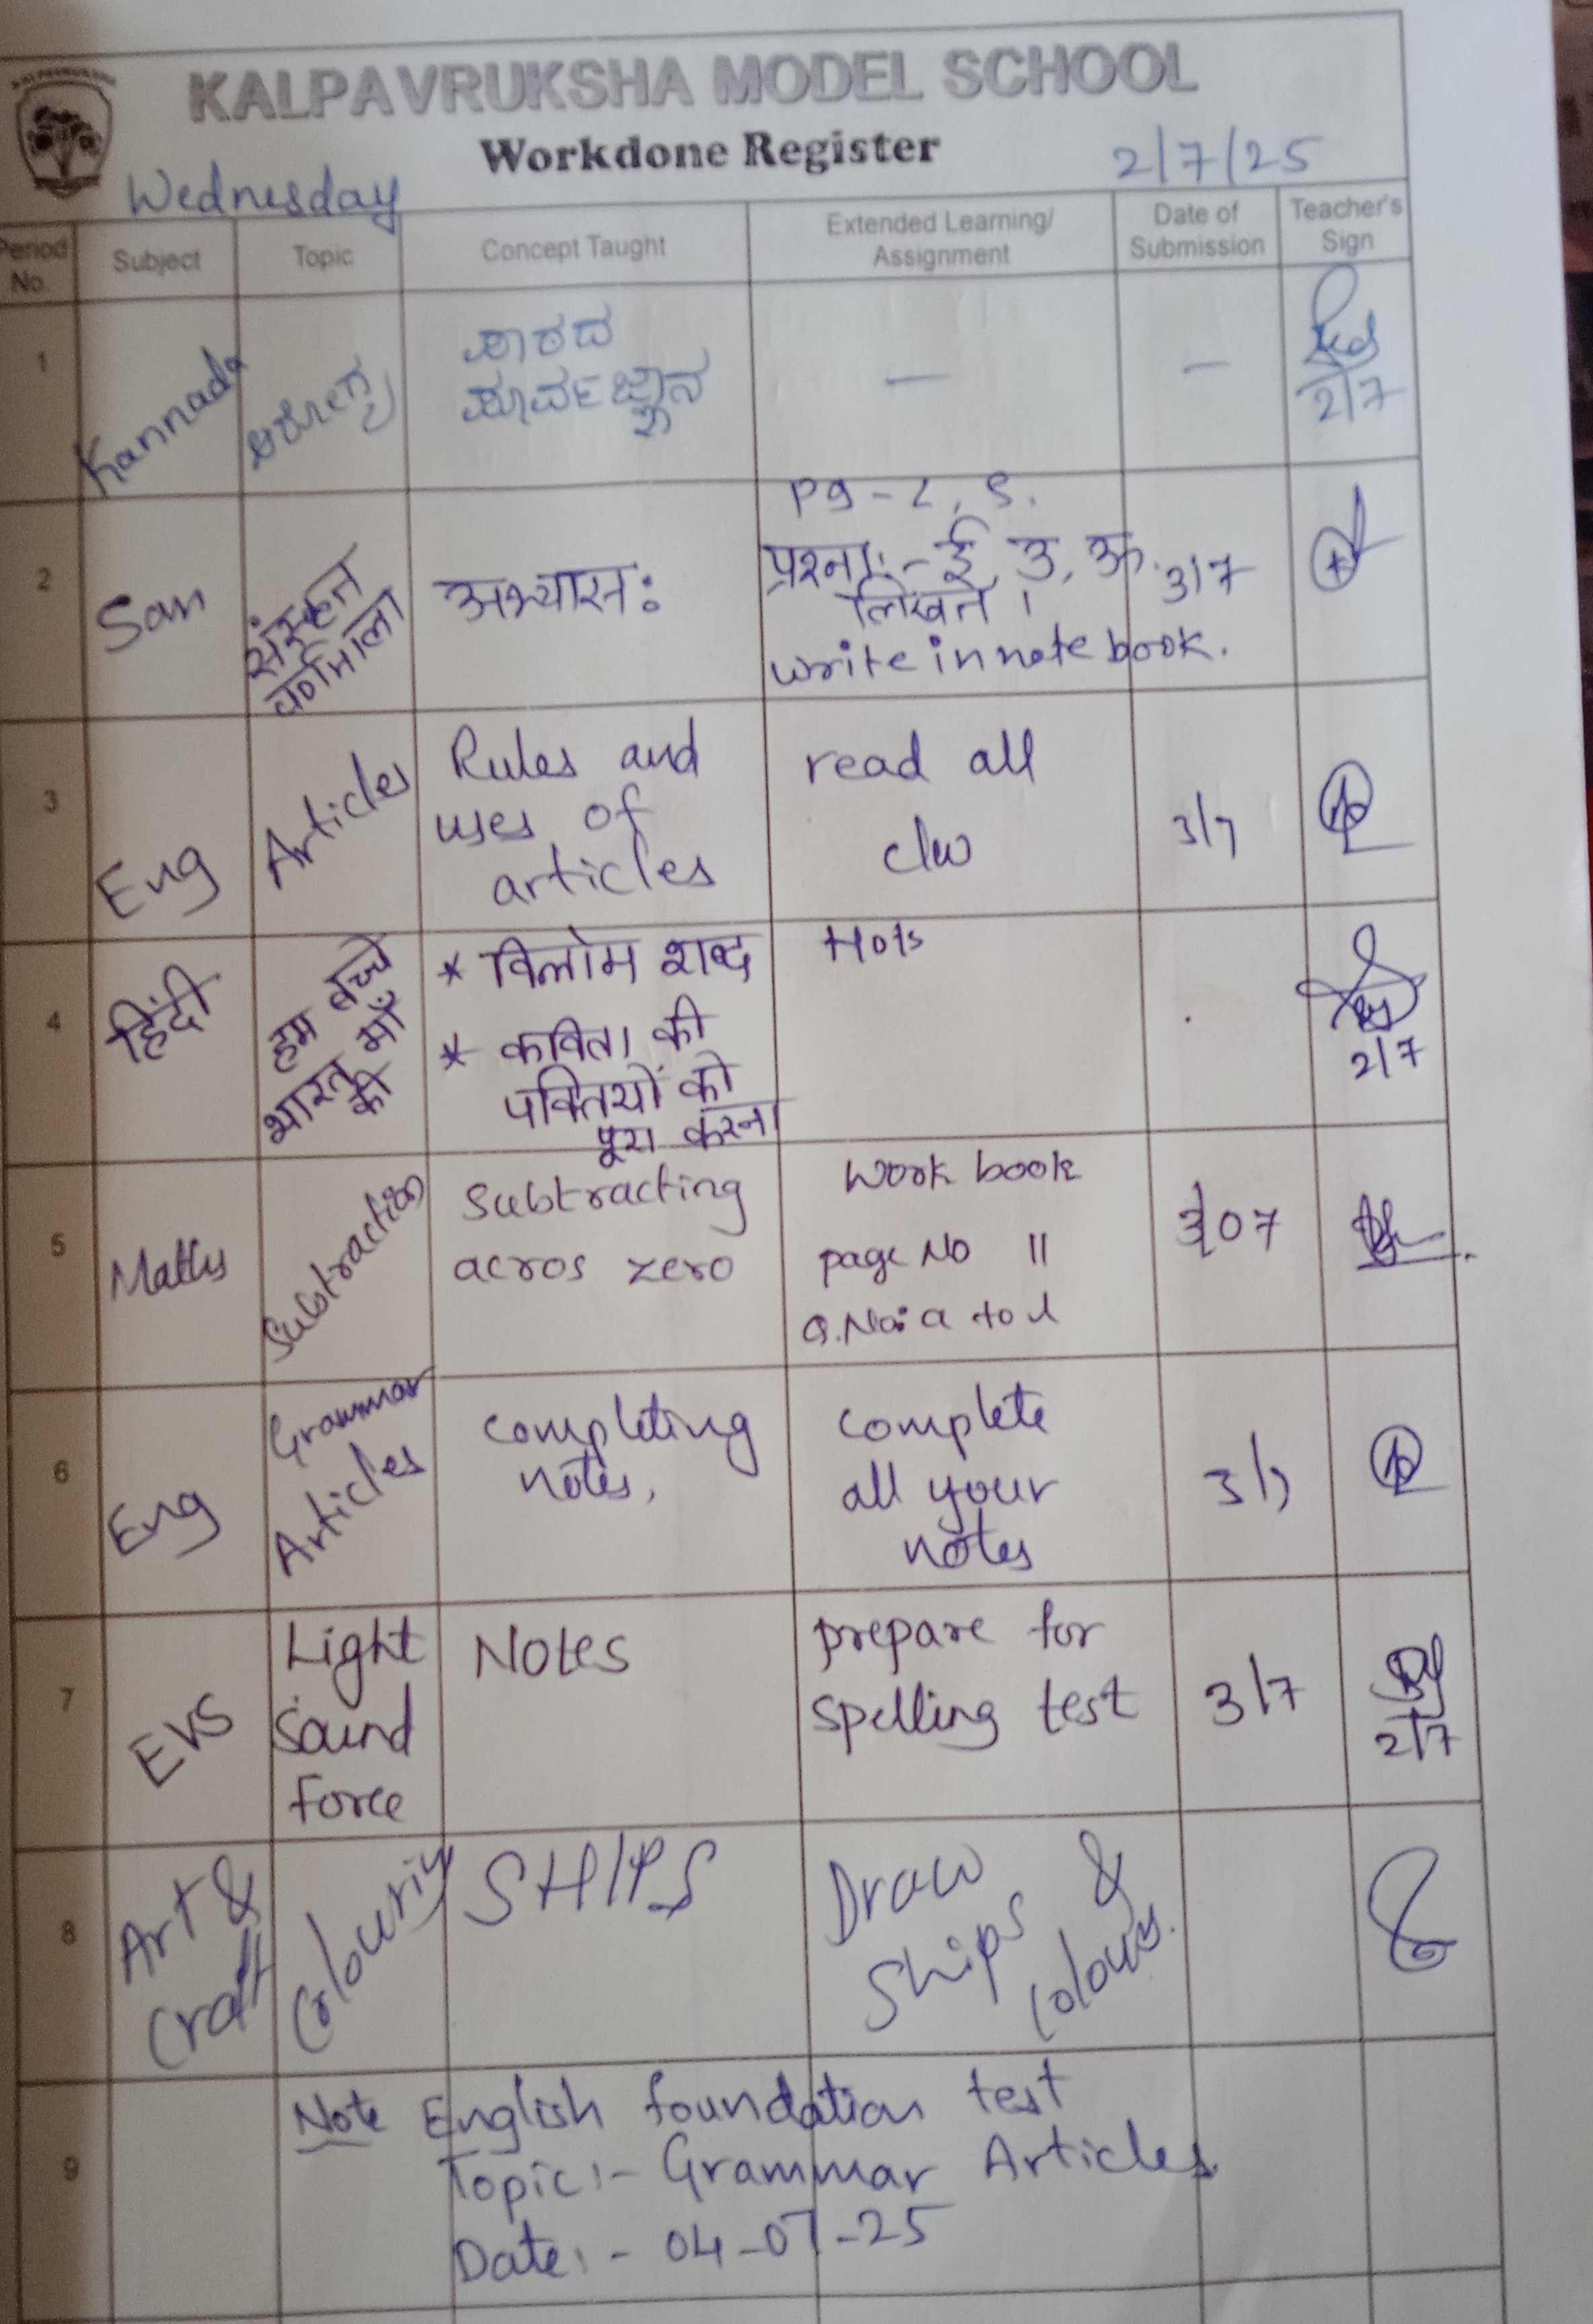 KALPAVRUKSHA
KALPAVRUKSHA MODEL SCHOOL
Workdone Register
Wednesday
2/7/25
Period No.
Subject
Topic
Concept Taught
Extended Learning/
Assignment
Date of
Submission
Teacher's
Sign
1
Kannada
ಆರೋಗ್ಯ
ಪಾಠದ
ಪೂರ್ವಜ್ಞಾನ
—
—
2/7
2
San
संस्कृत
वर्णमाला
अभ्यासः
Pg - ८, ९.
प्रश्नाः - ई, उ, ऊ.
लिखत।
write in note book.
3/7
3
Eng
Articles
Rules and
uses of
articles
read all
c/w
3/7
4
हिंदी
हम बच्चे
भारत माँ
की
* विलोम शब्द
* कविता की
पंक्तियों को
पूरा करना
Hots
2/7
5
Maths
Subtraction
Subtracting
acros zero
Work book
page No 11
Q.No: a to l
3/07
6
Eng
Grammar
Articles
Completing
notes,
Complete
all your
notes
3/7
7
EVS
Light
Sound
Force
Notes
prepare for
spelling test
3/7
2/7
8
Art &
Craft
Colouring
SHIPS
Draw
Ships &
colours.
9
Note English foundation test
Topic:- Grammar Articles
Date:- 04-07-25